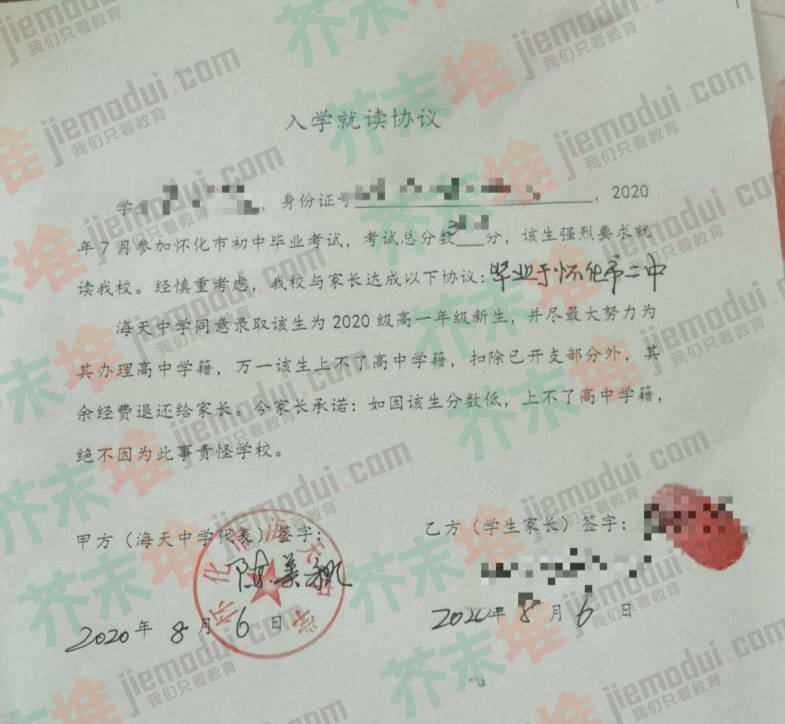 入学就读协议
学生，身份证号，2020
年7月参加怀化市初中毕业考试，考试总分数分，该生强烈要求就
读我校。经慎重考虑，我校与家长达成以下协议：毕业于怀化市二中
海天中学同意录取该生为2020级高一年级新生，并尽最大努力为
其办理高中学籍，万一该生上不了高中学籍，扣除已开支部分外，其
余经费退还给家长。今家长承诺：如因该生分数低，上不了高中学籍，
绝不因为此事责怪学校。
甲方（海天中学代表）签字：
乙方（学生家长）签字：
怀化市海天中学
2020年8月6日
2020年8月6日
芥末堆
jiemodui.com
我们只看教育